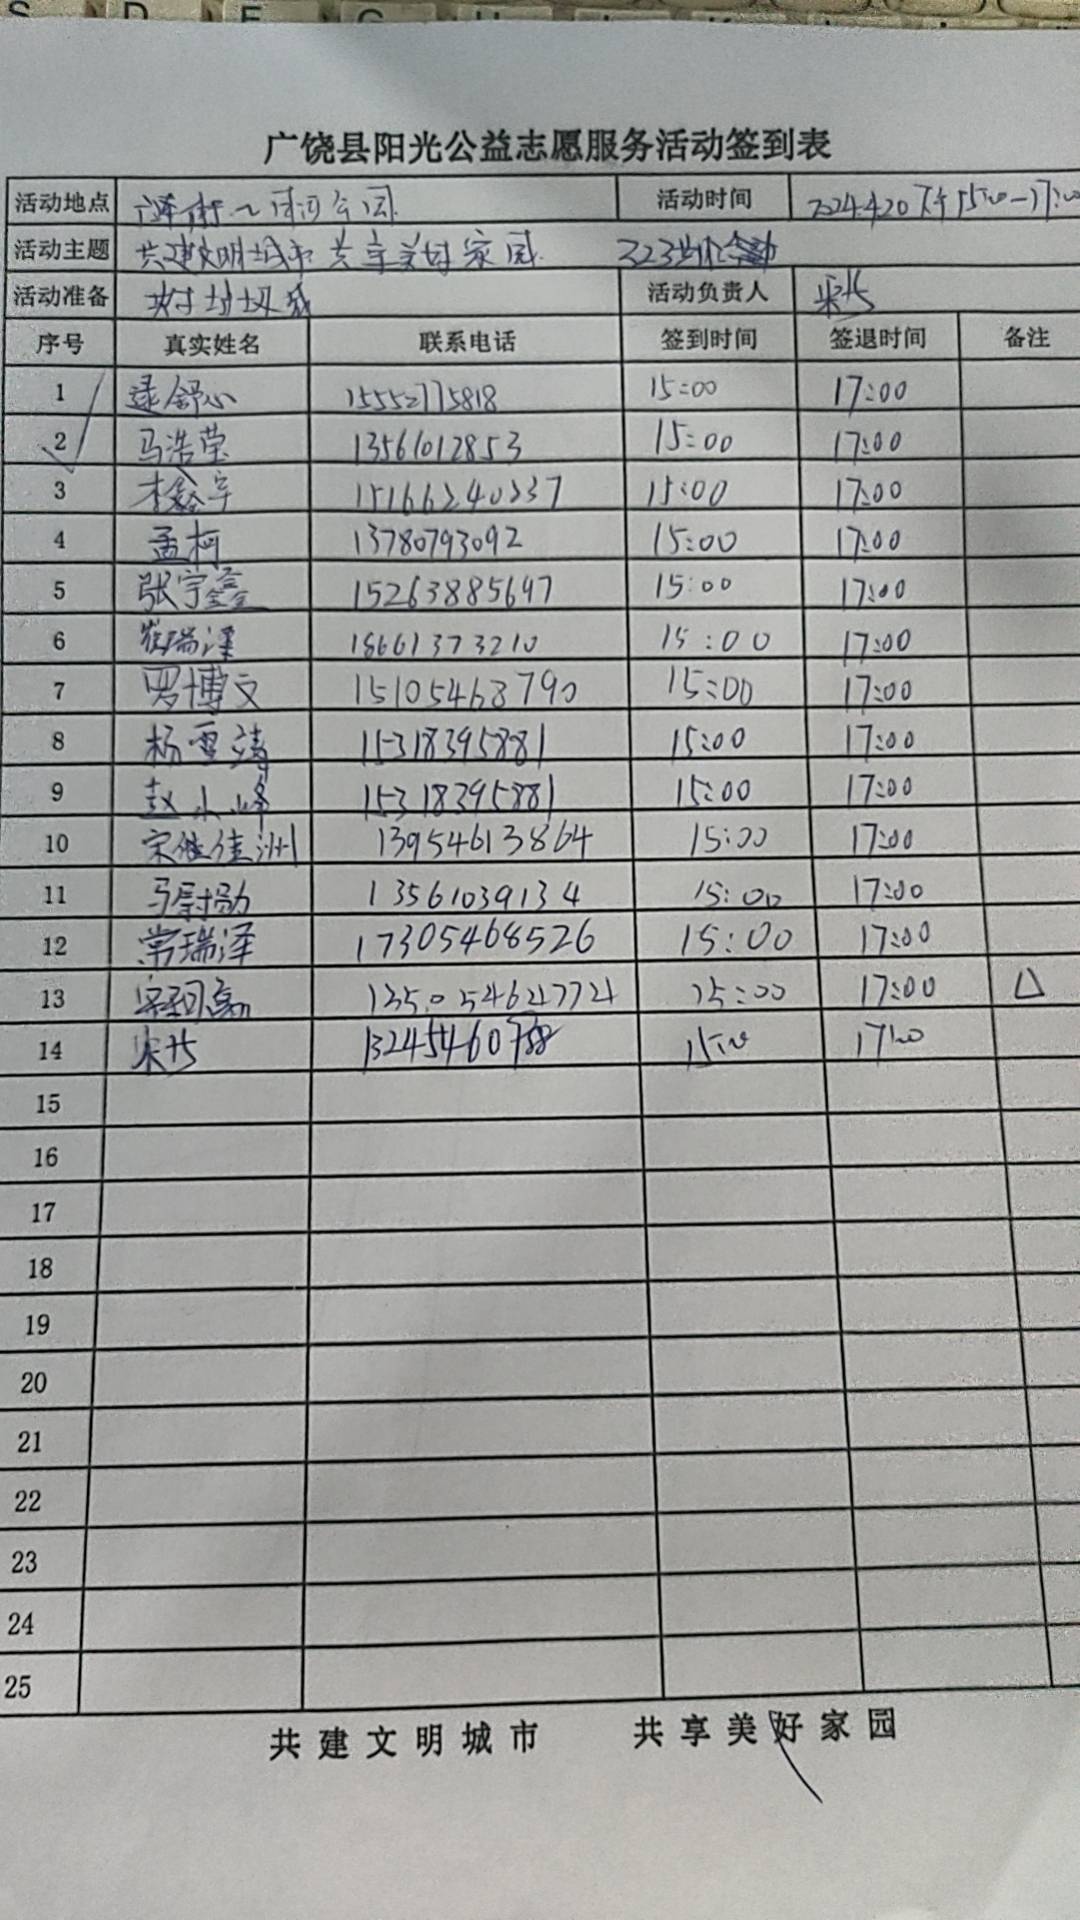 广饶县阳光公益志愿服务活动签到表
活动地点 公园 活动时间 2024.4.20 下午15:00-17:00
活动主题 共建文明城市 共享美好家园
活动准备 垃圾 活动负责人
序号 真实姓名 联系电话 签到时间 签退时间 备注
1 逯舒心 15552775818 15:00 17:00
2 马浩莹 13561012853 15:00 17:00
3 15166240237 15:00 17:00
4 孟柯 13780793092 15:00 17:00
5 张宇鑫 15263885697 15:00 17:00
6 崔瑞泽 18661373210 15:00 17:00
7 罗博文 15105463790 15:00 17:00
8 杨雪靖 15318395881 15:00 17:00
9 赵小峰 15318395881 15:00 17:00
10 宋 佳洲 13954613864 15:00 17:00
11 马尉勋 13561039134 15:00 17:00
12 常瑞泽 17305468526 15:00 17:00
13 15:00 17:00 △
14 15:00 17:00
15
16
17
18
19
20
21
22
23
24
25
共建文明城市 共享美好家园